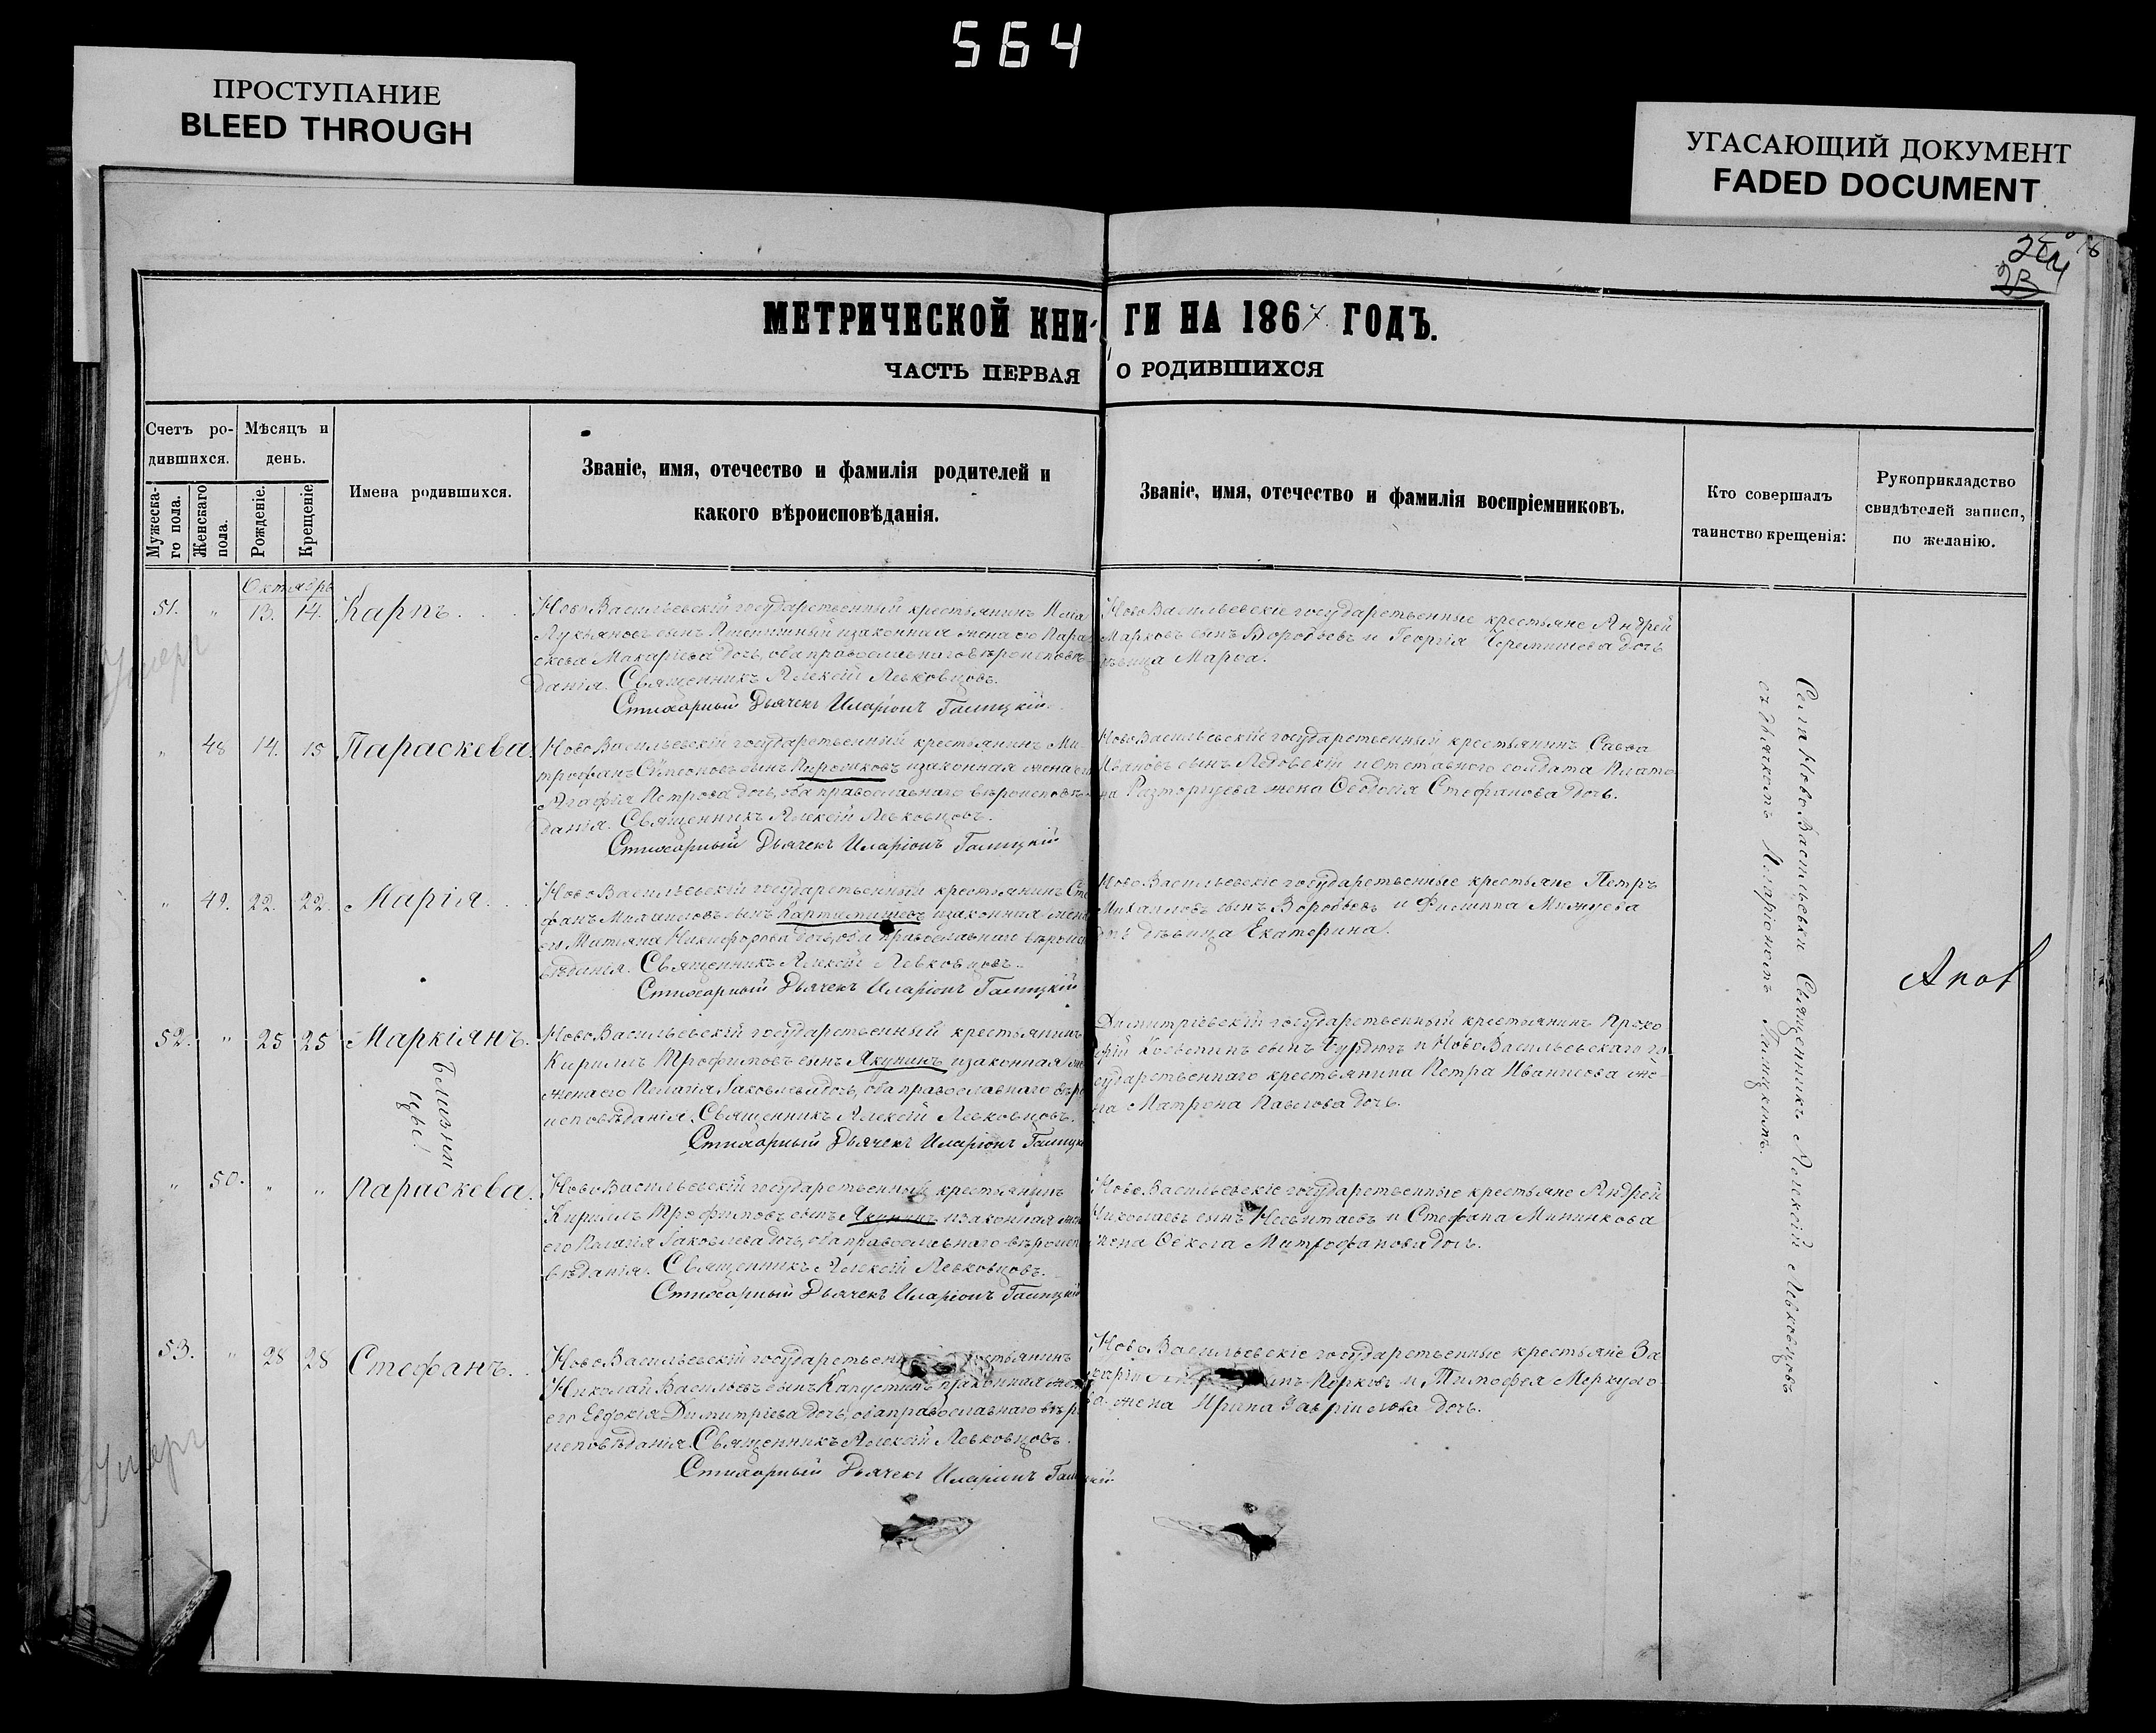 564
ПРОСТУПАНИЕ
BLEED THROUGH
УГАСАЮЩИЙ ДОКУМЕНТ
FADED DOCUMENT
МЕТРИЧЕСКОЙ КНИГИ НА 1867 ГОДЪ.
ЧАСТЬ ПЕРВАЯ О РОДИВШИХСЯ
Счетъ ро-
дившихся.
Мужеска-
го пола.
Женскаго
пола.
Мѣсяцъ и
день.
Рожденіе.
Крещеніе.
Имена родившихся.
Званіе, имя, отечество и фамилія родителей и
какого вѣроисповѣданія.
Званіе, имя, отечество и фамилія воспріемниковъ.
Кто совершалъ
таинство крещенія:
Рукоприкладство
свидѣтелей записи,
по желанію.
Октябрь
51. " 13. 14. Карпъ.
НовоВасильевскій государственный крестьянинъ
Лукьяновъ сынъ Пшеничный изаконная жена его Пара-
скева Макаріева дочь, оба православнаго вѣроисповѣ-
данія. Священникъ Алексій Левковцовъ.
Стихарный Дьячекъ Иларіонъ Галицкій.
НовоВасильевскіе государственные крестьяне Андрей
Марковъ сынъ Воробьевъ и Георгія Черемисова дочь
дѣвица Марѳа.
Умеръ
" 48 14. 15 Параскева.
НовоВасильевскій государственный крестьянинъ Ми-
трофанъ Симеоновъ сынъ изаконная жена его
Агафія Петрова дочь, оба православнаго вѣроисповѣ-
данія. Священникъ Алексій Левковцовъ.
Стихарный Дьячекъ Иларіонъ Галицкій
НовоВасильевскій государственный крестьянинъ Савва
Ивановъ сынъ Ледовскій и отставного солдата Плато-
на Разторгуева жена Ѳеодосія Стефанова дочь.
" 49. 22. 22. Марія.
НовоВасильевскій государственный крестьянинъ Сте-
фанъ Михаиловъ сынъ изаконная жена
его Матяна Никифорова дочь, оба православнаго вѣроиспо-
вѣданія. Священникъ Алексій Левковцовъ.
Стихарный Дьячекъ Иларіонъ Галицкій
НовоВасильевскіе государственные крестьяне Петръ
Михаиловъ сынъ Воробьевъ и Филиппа
дочь дѣвица Екатерина.
52. " 25 25 Маркіянъ.
Близнецы.
НовоВасильевскій государственный крестьянинъ
Кириллъ Трофимовъ сынъ Якунинъ изаконная
жена его Пелагія Іаковлева дочь, оба православнаго вѣро-
исповѣданія. Священникъ Алексій Левковцовъ.
Стихарный Дьячекъ Иларіонъ Галицкій
Димитріевскій государственный крестьянинъ Проко-
фій Косьминъ сынъ Бурдюгъ и НовоВасильевскаго го-
сударственнаго крестьянина Петра Иванисова же-
на Матрона Павлова дочь.
" 50. " " Параскева.
НовоВасильевскій государственный крестьянинъ
Кириллъ Трофимовъ сынъ Якунинъ изаконная жена
его Пелагія Іаковлева дочь, оба православнаго вѣроиспо-
вѣданія. Священникъ Алексій Левковцовъ.
Стихарный Дьячекъ Иларіонъ Галицкій
НовоВасильевскіе государственные крестьяне Андрей
Николаевъ сынъ Несвитаевъ и Стефана Мининкова
жена Ѳекла Митрофанова дочь.
53. " 28 28 Стефанъ.
НовоВасильевскій государственный крестьянинъ
Николай Васильевъ сынъ Капустинъ изаконная жена
его Евдокія Димитріева дочь, оба православнаго вѣро-
исповѣданія. Священникъ Алексій Левковцовъ.
Стихарный Дьячекъ Иларіонъ Галицкій
НовоВасильевскіе государственные крестьяне За-
харій и Тимофея Меркуло-
ва жена Ирина Гавріилова дочь.
Умеръ
Села НовоВасильевки Священникъ Алексій Левковцовъ
съ Дьячкомъ Иларіономъ Галицкимъ.